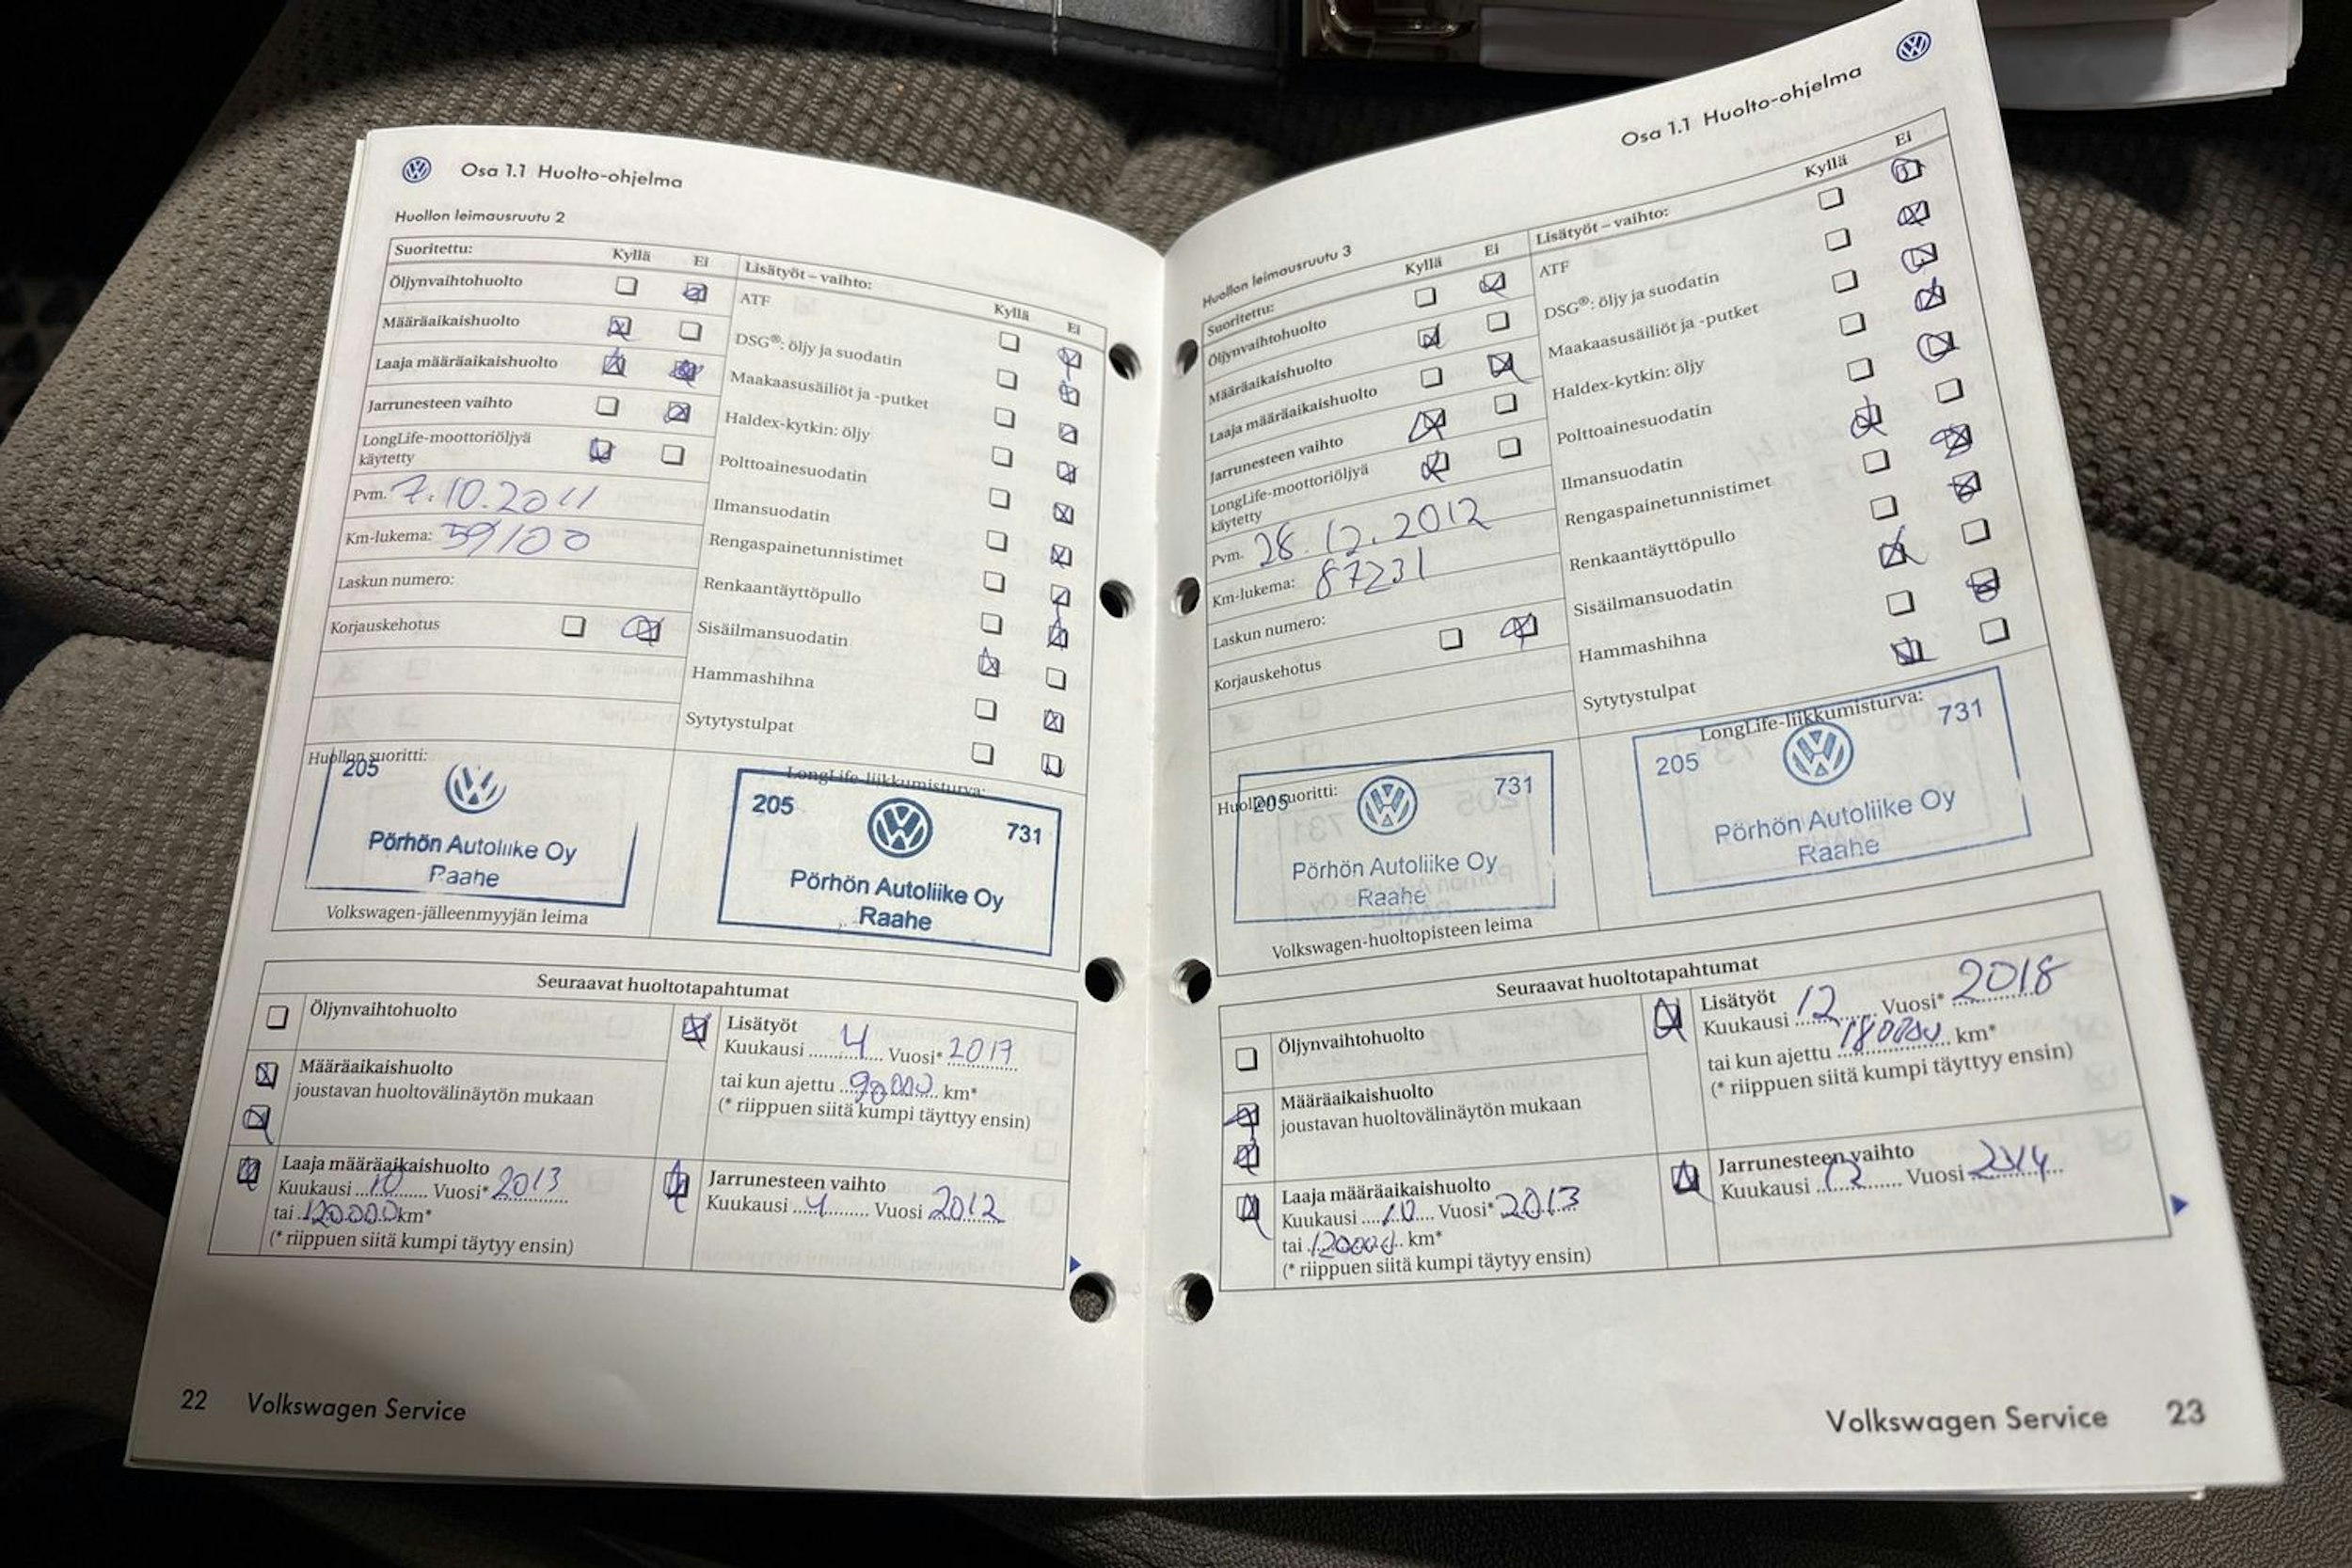 Osa 1.1 Huolto-ohjelma
Huollon leimausruutu 2
Suoritettu: Kyllä Ei
Öljynvaihtohuolto
Määräaikaishuolto
Laaja määräaikaishuolto
Jarrunesteen vaihto
LongLife-moottoriöljyä
käytetty
Pvm. 7.10.2011
Km-lukema: 59100
Laskun numero:
Korjauskehotus
Lisätyöt – vaihto: Kyllä Ei
ATF
DSG®: öljy ja suodatin
Maakaasusäiliöt ja -putket
Haldex-kytkin: öljy
Polttoainesuodatin
Ilmansuodatin
Rengaspainetunnistimet
Renkaantäyttöpullo
Sisäilmansuodatin
Hammashihna
Sytytystulpat
Huollon suoritti:
205
Pörhön Autoliike Oy
Raahe
Volkswagen-jälleenmyyjän leima
LongLife-liikkumisturva:
205 731
Pörhön Autoliike Oy
Raahe
Seuraavat huoltotapahtumat
Öljynvaihtohuolto
Määräaikaishuolto
joustavan huoltovälinäytön mukaan
Laaja määräaikaishuolto
Kuukausi 10 Vuosi* 2013
tai 120000 km*
(* riippuen siitä kumpi täytyy ensin)
Lisätyöt
Kuukausi 4 Vuosi* 2017
tai kun ajettu 90000 km*
(* riippuen siitä kumpi täyttyy ensin)
Jarrunesteen vaihto
Kuukausi 4 Vuosi 2012
22 Volkswagen Service
Osa 1.1 Huolto-ohjelma
Huollon leimausruutu 3
Suoritettu: Kyllä Ei
Öljynvaihtohuolto
Määräaikaishuolto
Laaja määräaikaishuolto
Jarrunesteen vaihto
LongLife-moottoriöljyä
käytetty
Pvm. 28.12.2012
Km-lukema: 87231
Laskun numero:
Korjauskehotus
Lisätyöt – vaihto: Kyllä Ei
ATF
DSG®: öljy ja suodatin
Maakaasusäiliöt ja -putket
Haldex-kytkin: öljy
Polttoainesuodatin
Ilmansuodatin
Rengaspainetunnistimet
Renkaantäyttöpullo
Sisäilmansuodatin
Hammashihna
Sytytystulpat
Huollon suoritti:
205 731
Pörhön Autoliike Oy
Raahe
Volkswagen-huoltopisteen leima
LongLife-liikkumisturva:
205 731
Pörhön Autoliike Oy
Raahe
Seuraavat huoltotapahtumat
Öljynvaihtohuolto
Määräaikaishuolto
joustavan huoltovälinäytön mukaan
Laaja määräaikaishuolto
Kuukausi 10 Vuosi* 2013
tai 120000 km*
(* riippuen siitä kumpi täytyy ensin)
Lisätyöt
Kuukausi 12 Vuosi* 2018
tai kun ajettu 180000 km*
(* riippuen siitä kumpi täyttyy ensin)
Jarrunesteen vaihto
Kuukausi 12 Vuosi 2014
Volkswagen Service 23